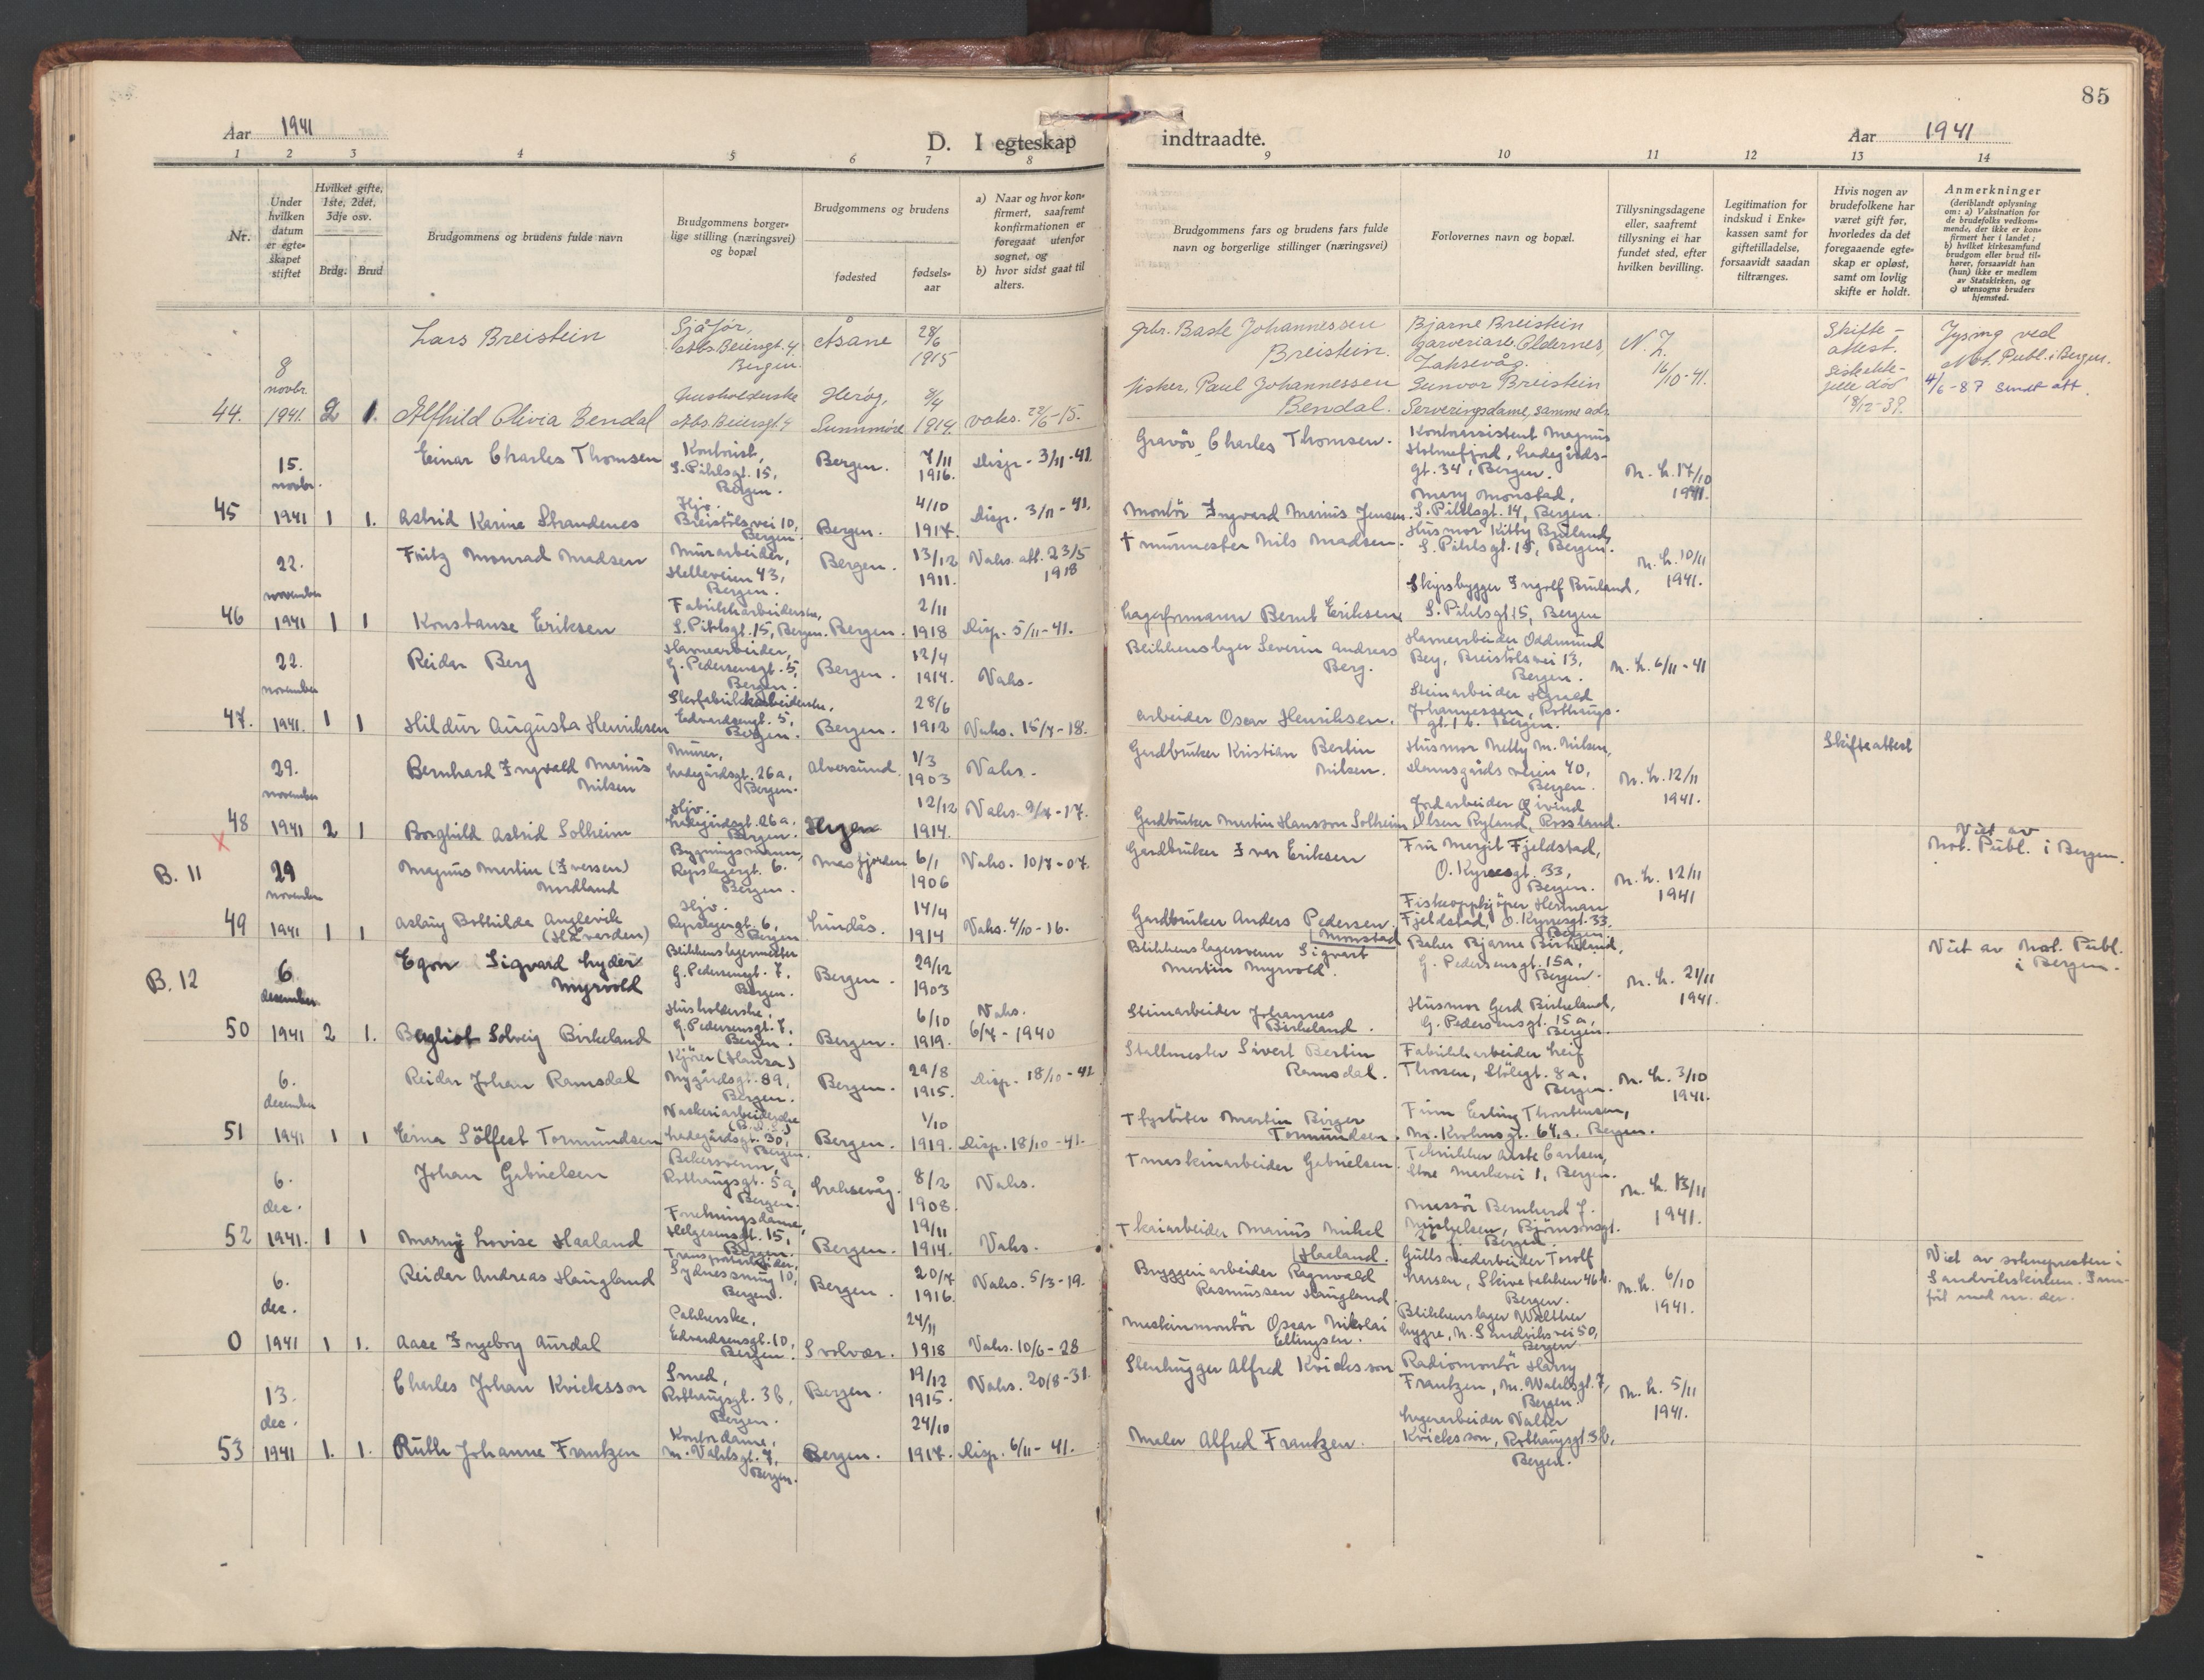 85
Aar 1941
D. I egteskap indtraadte.
Aar 1941
1 2 3 4 5 6 7 8 9 10 11 12 13 14
Nr.
Under hvilken datum er egteskapet stiftet
Hvilket gifte, 1ste, 2det, 3dje osv.
Brdg. Brud
Brudgommens og brudens fulde navn
Brudgommens borgerlige stilling (næringsvei) og bopæl
Brudgommens og brudens
fødested
fødselsaar
a) Naar og hvor konfirmert, saafremt konfirmationen er foregaat utenfor sognet, og
b) hvor sidst gaat til alters.
Brudgommens fars og brudens fars fulde navn og borgerlige stillinger (næringsvei)
Forlovernes navn og bopæl.
Tillysningsdagene eller, saafremt tillysning ei har fundet sted, efter hvilken bevilling.
Legitimation for indskud i Enkekassen samt for giftetilladelse, forsaavidt saadan tiltrænges.
Hvis nogen av brudefolkene har været gift før, hvorledes da det foregaaende egteskap er opløst, samt om lovlig skifte er holdt.
Anmerkninger
(deriblandt oplysning om: a) Vaksination for de brudefolks vedkommende, der ikke er konfirmert her i landet; b) hvilket kirkesamfund brudgom eller brud tilhører, forsaavidt han (hun) ikke er medlem av Statskirken, og c) utensogns bruders hjemsted.
44. 8 novbr. 1941. 2 1.
Lars Breistein
Sjåfør, Abs. Beiersgt. 4 Bergen.
Åsane 28/6 1915
Gbr. Baste Johannessen Breistein.
Bjarne Breistein garveriarb. Oldernes, Laksevåg.
N. L. 16/10-41.
Skifteattest.
Lysing ved Not. Publ. i Bergen.
4/6-87 sendt att.
Alfhild Olivia Bendal
Husholderske Abs. Beiersgt. 4
Herøy, Sunnmøre 1914. Vaks. 22/6-15.
Fisker, Paul Johannessen Bendal.
Gunvor Breistein Serveringsdame, samme adr.
45 15. novbr. 1941 1 1.
Einar Charles Thomsen
Kontorist, S. Pihlsgt. 15, Bergen.
Bergen. 7/11 1916. Disp. 3/11-41.
Gravør Charles Thomsen.
Kontorassistent Magnus Holmefjord, Ladegårdsgt. 34, Bergen.
N. L. 17/10 1941.
Astrid Karine Strandenes
Hjv. Breistölsvei 10, Bergen.
Bergen. 4/10 1917. Disp. 3/11-41.
Montör Ingvard Marius Jensen.
Mary Monstad, S. Pihlsgt. 14, Bergen.
46 22. november 1941 1 1
Fritz Monrad Madsen
Murarbeider, Helleveien 43, Bergen.
Bergen. 13/12 1911. Vaks. att. 23/5 1918
† murmester Nils Madsen.
Husmor Kitty Bruland, S. Pihlsgt. 15, Bergen.
N. L. 10/11 1941.
Konstanse Eriksen
Fabrikkarbeiderske, S. Pihlsgt. 15, Bergen.
Bergen. 2/11 1918 Disp. 5/11-41.
Lagerformann Bernt Eriksen,
Skipsbygger Ingolf Bruland, S. Pihlsgt 15, Bergen
47. 22. november 1941. 1 1
Reidar Berg
Havnearbeider, G. Pedersensgt. 5, Bergen.
Bergen. 12/4 1914. Vaks.
Blikkenslager Severin Andreas Berg.
Havnearbeider Oddmund Berg, Breistölsvei 13, Bergen.
N. L. 6/11-41
Hildur Augusta Henriksen
Skofabrikkarbeiderske, Edvardsensgt. 5, Bergen.
Bergen. 28/6 1912 Vaks. 15/7-18.
Arbeider Oscar Henriksen.
Steinarbeider Harald Johannessen, Rothaugsgt. 1 b. Bergen.
48 29. november 1941 2 1
Bernhard Ingvald Marius Nilsen
Murer, Ladegårdsgt. 26a, Bergen.
Alversund. 1/3 1903 Vaks.
Gardbruker Kristian Bertin Nilsen.
Husmor Nelly M. Nilsen, Formannsgårds veien 40, Bergen.
N. L. 12/11 1941.
Skifteattest
Borghild Astrid Solheim
Hjv. Ladegårdsgt. 26a, Bergen.
12/12 1914. Vaks. 9/7-17.
Gardbruker Martin Hansson Solheim
Jordarbeider Øivind Olsen Ryland, Rossland.
x
B. 11 49 29 november 1941 1 1
Magnus Martin (Iversen) Nordland
Bygningsmann, Repslagergt. 6. Bergen.
Masfjorden 6/1 1906 Vaks. 10/7-07.
Gardbruker Ivar Eriksen
Fru Margit Fjeldstad, O. Kyrresgt. 33, Bergen.
N. L. 12/11 1941
Viet av Not. Publ. i Bergen.
Aslaug Bothilde Anglevik
Hjv. Repslagergt. 6, Bergen
Lindås. 14/4 1914 Vaks. 4/10-16.
Gardbruker Anders Pedersen Monstad
Fiskeoppkjöper Herman Fjeldstad, O. Kyrresgt. 33. Bergen.
B. 12 50 6. desember 1941 2 1.
Egon Sigvard Lyder Myrvold
Blikkenslagermester G. Pedersensgt. 7, Bergen.
Bergen. 29/12 1903
Blikkenslagersvenn Sigvart Martin Myrvold.
Baker Bjarne Birkeland, G. Pedersensgt. 15a, Bergen.
N. L. 21/11 1941.
Viet av Not. Publ. i Bergen.
Bergliot Solveig Birkeland
Husholderske, G. Pedersensgt. 7, Bergen.
Bergen. 6/10 1919. Vaks. 6/7-1940
Steinarbeider Johannes Birkeland.
Husmor Gerd Birkeland, G. Pedersensgt. 15a, Bergen.
51 6. december 1941 1 1
Reidar Johan Ramsdal
Kjörer (Hansa) Nygårdsgt. 89, Bergen.
Bergen. 29/8 1915. Disp. 18/10-41
Stallmester Sivert Bertin Ramsdal.
Fabrikkarbeider Leif Thorsen, Stölegt. 8a, Bergen.
N. L. 3/10 1941.
Erna Sölfest Tormundsen
Vaskeriarbeiderske Ladegårdsgt. 30, Bergen.
Bergen. 1/10 1919. Disp. 18/10-41.
† fyrböter Martin Birger Tormundsen.
Finn Erling Thorstensen, M. Krohnsgt. 64, a. Bergen.
52 6. dec. 1941. 1 1
Johan Gabrielsen
Bakersvenn, Rothaugsgt. 5a, Bergen.
Laksevåg. 8/2 1908. Vaks.
† maskinarbeider Gabrielsen.
Tekniker Aaste Carlsen, Store Markevei 1, Bergen.
N. L. 13/11 1941.
Marny Lovise Haaland
Forretningsdame, Helgesensgt. 15, Bergen.
Bergen. 19/11 1914. Vaks.
† kaiarbeider Marius Mikal Haaland.
Massör Bernhard J. Myskelsen, Björnsonsgt. 26, Bergen.
0 6. dec. 1941 1 1.
Reidar Andreas Haugland
Transportarbeider, Sydnessmug 10, Bergen.
Bergen. 20/7 1916. Vaks. 5/3-19.
Bryggeriarbeider Ragnvald Rasmussen Haugland.
Gullsmedarbeider Torolf Larsen, Skivebakken 46 b. Bergen.
N. L. 6/10 1941.
Viet av sokneprester i Sandvikskirken. Innfört med nr. der.
Aase Ingeborg Aurdal
Pakkerske, Edvardsensgt. 10, Bergen.
Svolvær. 24/11 1918 Vaks. 10/6-28
Maskinmontör Oscar Nikolai Ellingsen.
Blikkenslager Walther Lygre, N. Sandviksvei 50, Bergen
53 13. dec. 1941 1. 1.
Charles Johan Kvicksson
Smed, Rothaugsgt. 3b, Bergen.
Bergen. 19/12 1915. Vaks. 20/8-31.
Stenhugger Alfred Kvicksson
Radiomontör Harry Frantzen, M. Wahlsgt. 7, Bergen.
N. L. 5/11 1941.
Ruth Johanne Frantzen
Kontordame, M. Vahlsgt. 7, Bergen.
Bergen. 24/10 1917. Disp. 6/11-41.
Maler Alfred Frantzen.
Lagerarbeider Valter Kvicksson, Rothaugsgt 3b, Bergen.